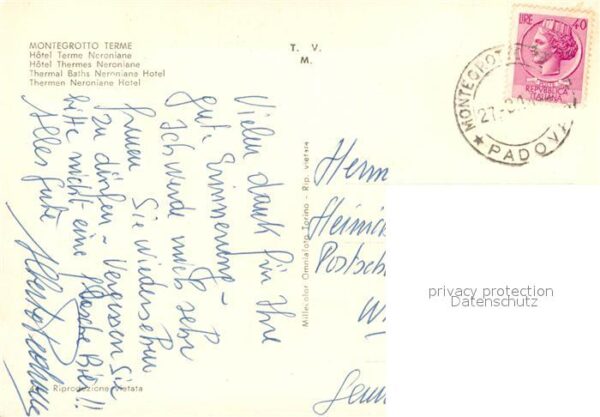 MONTEGROTTO TERME
Hôtel Terme Neroniane
Hôtel Thermes Neroniane
Thermal Baths Neroniane Hotel
Thermen Neroniane Hotel
T. V.
M.
LIRE 40
REPUBBLICA
ITALIANA
MONTEGROTTO
PADOVA
27.
Vielen dank für Ihre
gute Erinnerung -
Ich werde mich sehr
freuen Sie wiedersehen
zu dürfen - Vergessen Sie
bitte nicht eine flasche Bier!!
Alles gute
Millecolor Omniafoto Torino - Rip. vietata
Herrn
Heinric
Postsch
privacy protection
Datenschutz
Riproduzione vietata